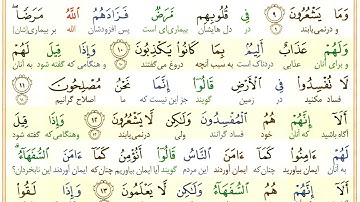 وَمَا يَشْعُرُونَ ٩ فِي قُلُوبِهِم مَرَضٌ فَزَادَهُمُ اللَّهُ مَرَضًا
و درنمی‌یابند در دل هایشان بیماری‌ای است پس افزودشان الله بر بیماری(شان)
وَلَهُمْ عَذَابٌ أَلِيمٌ بِمَا كَانُوا يَكْذِبُونَ ١٠ وَإِذَا قِيلَ لَهُمْ
و برای آنان عذابی دردناک است به سبب آنچه دروغ می‌گفتند و هنگامی که گفته شود به آنان
لَا تُفْسِدُوا فِي الْأَرْضِ قَالُوا إِنَّمَا نَحْنُ مُصْلِحُونَ ١١
فساد مکنید در زمین گویند جز این نیست که ما اصلاح گرانیم
أَلَا إِنَّهُمْ هُمُ الْمُفْسِدُونَ وَلَكِن لَّا يَشْعُرُونَ ١٢ وَإِذَا قِيلَ
آگاه باشید که آنان خود فساد گرانند ولی درنمی‌یابند و هنگامی که گفته شود
لَهُمْ ءَامِنُوا كَمَا ءَامَنَ النَّاسُ قَالُوا أَنُؤْمِنُ كَمَا ءَامَنَ السُّفَهَاءُ
به آنان ایمان بیاورید چنان‌که ایمان آوردند این مردم گویند آیا ایمان بیاوریم چنان‌که ایمان آوردند این نابخردان؟
أَلَا إِنَّهُمْ هُمُ السُّفَهَاءُ وَلَكِن لَّا يَعْلَمُونَ ١٣ وَإِذَا لَقُوا